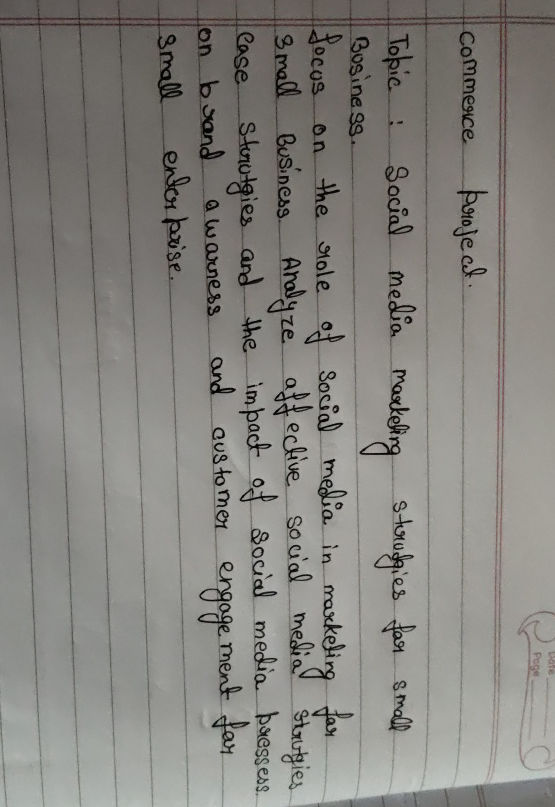 Date
Page
commerce project.
Topic : Social media marketing strudgies for small
Business.
focus on the role of social media in marketing for
small Business. Analyze affective social media strutgies
case strutgies and the impact of social media pressess.
on brand awarness and customer engagement for
small enterprise.